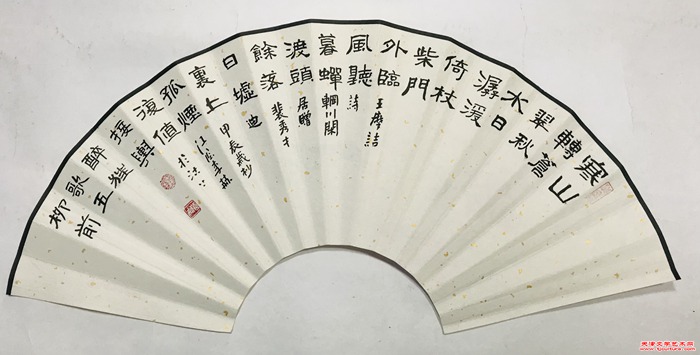 寒山
轉蒼
翠秋
水日
潺湲
倚杖
柴門
外臨
王摩詰
風聽
詩
暮蟬
輞川閑
渡頭
居贈
餘落
裴秀才
日墟
迪
裏上
甲辰歲杪
孤煙
復值
接輿
醉狂
歌五
柳前
天津文学艺术网